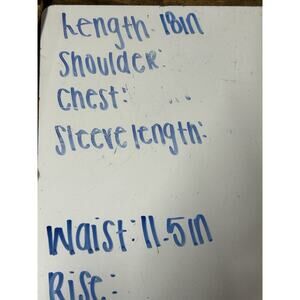 Length: 18in
Shoulder:
Chest:
Sleeve length:
Waist: 11.5in
Rise: